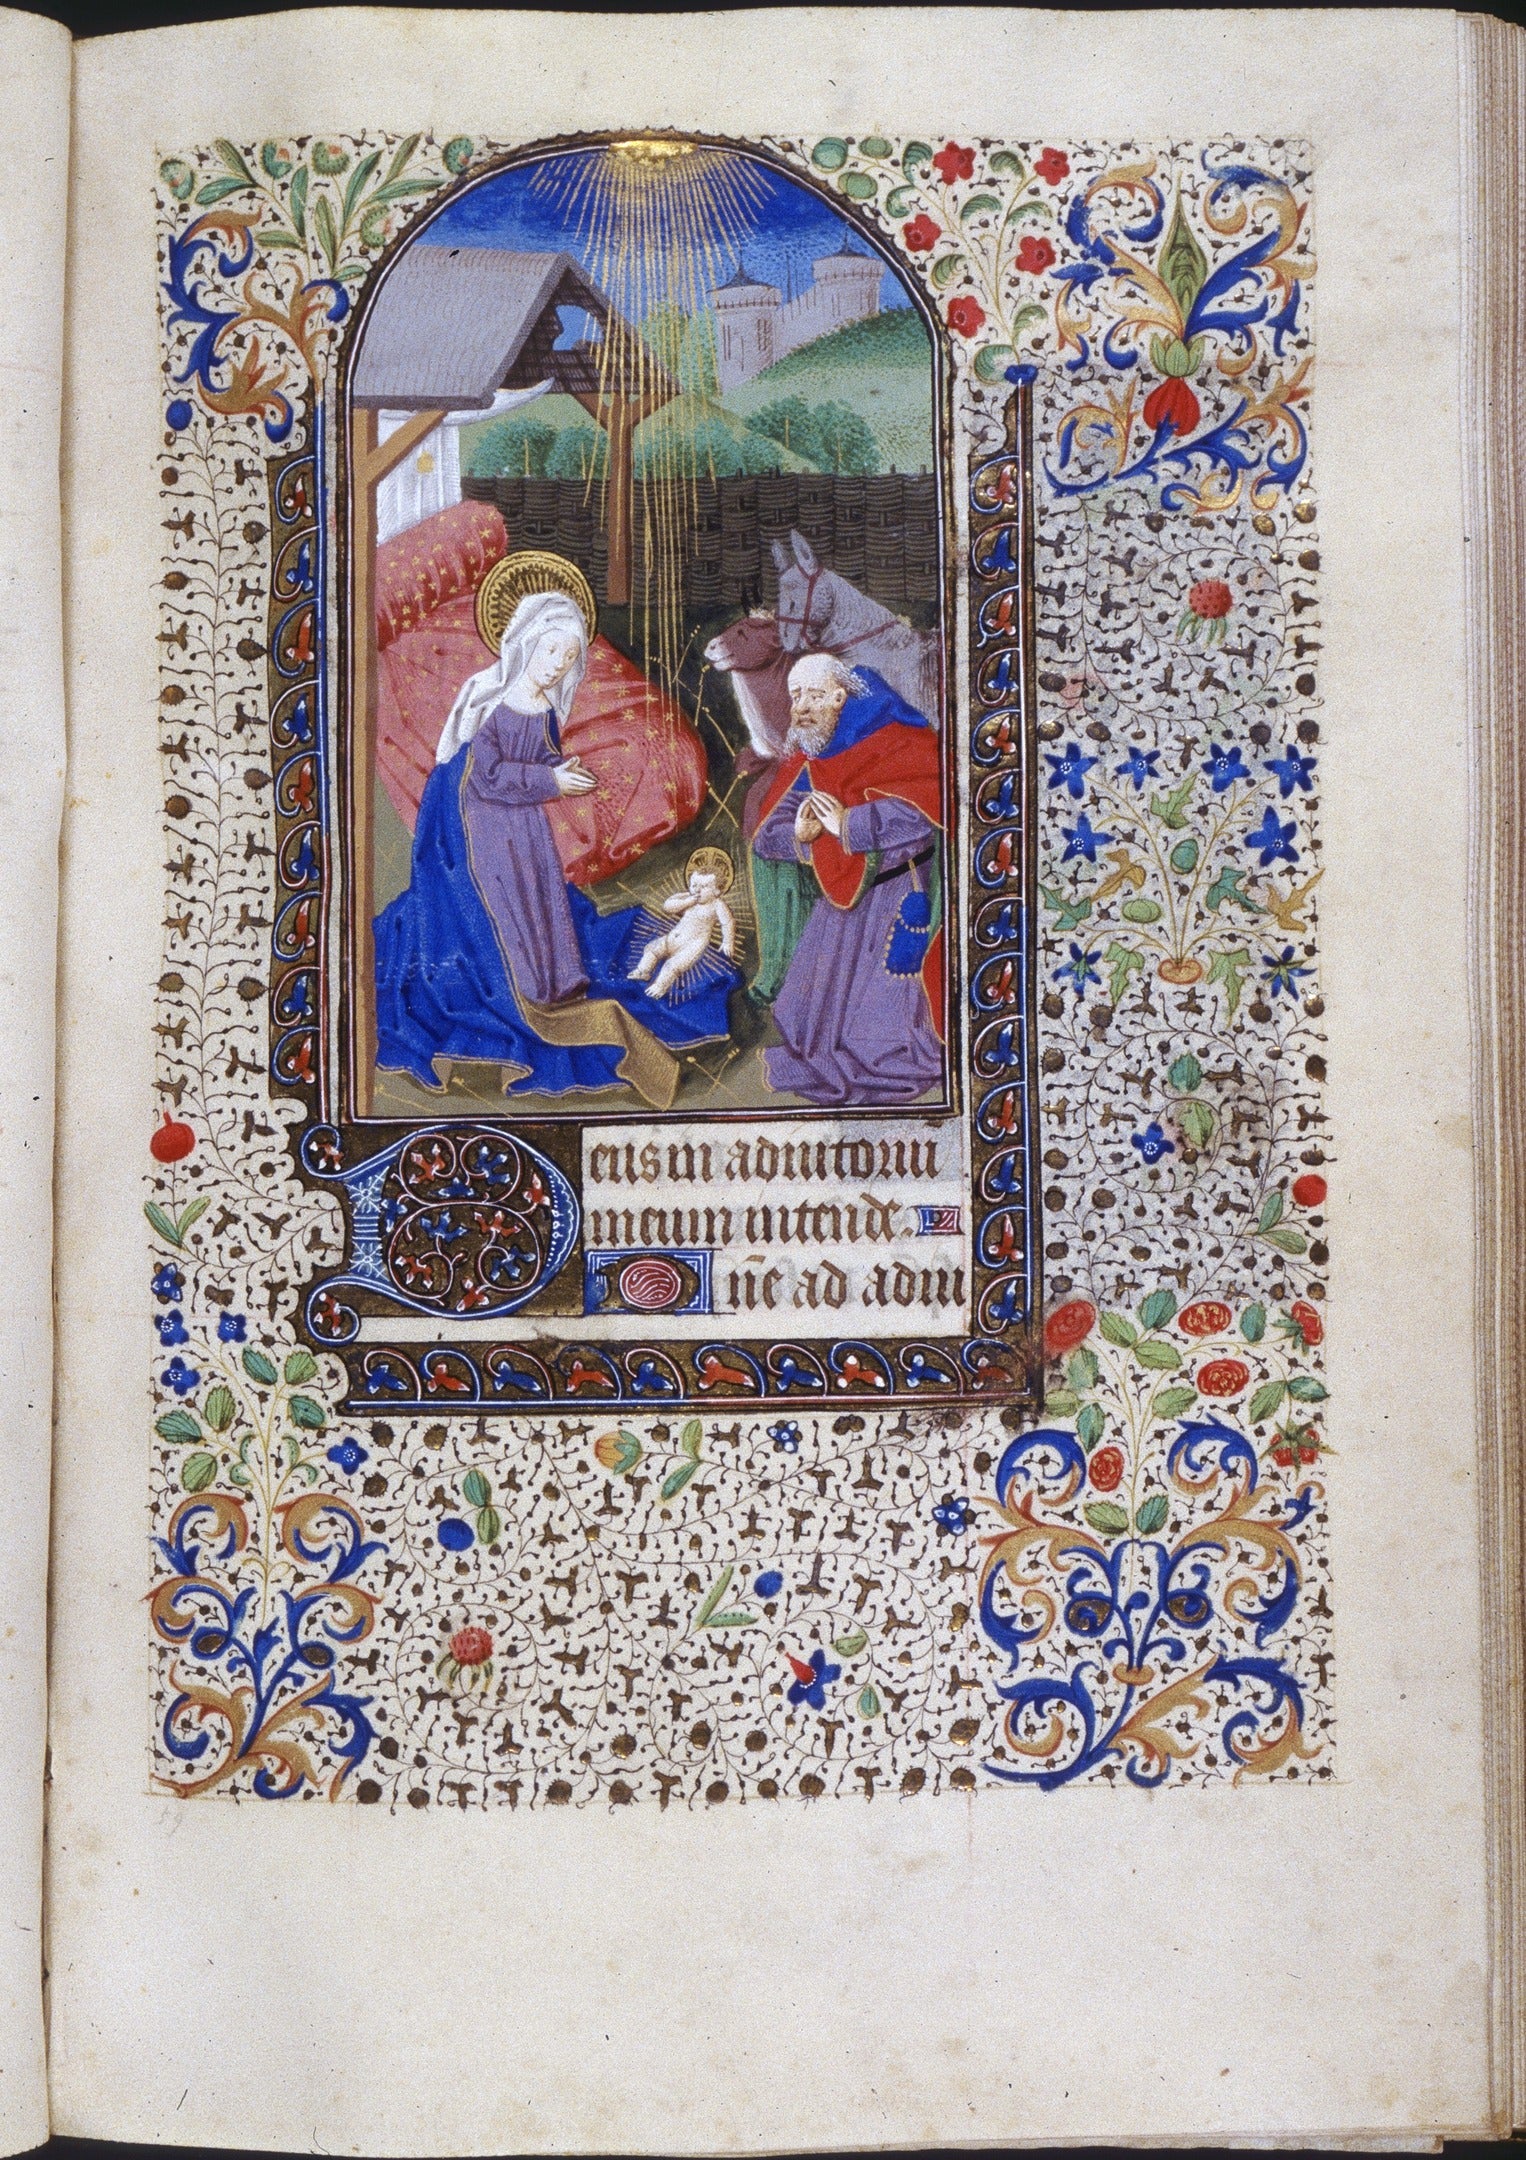 Deus in adiutoriu
meum intende.
Dñe ad adiu